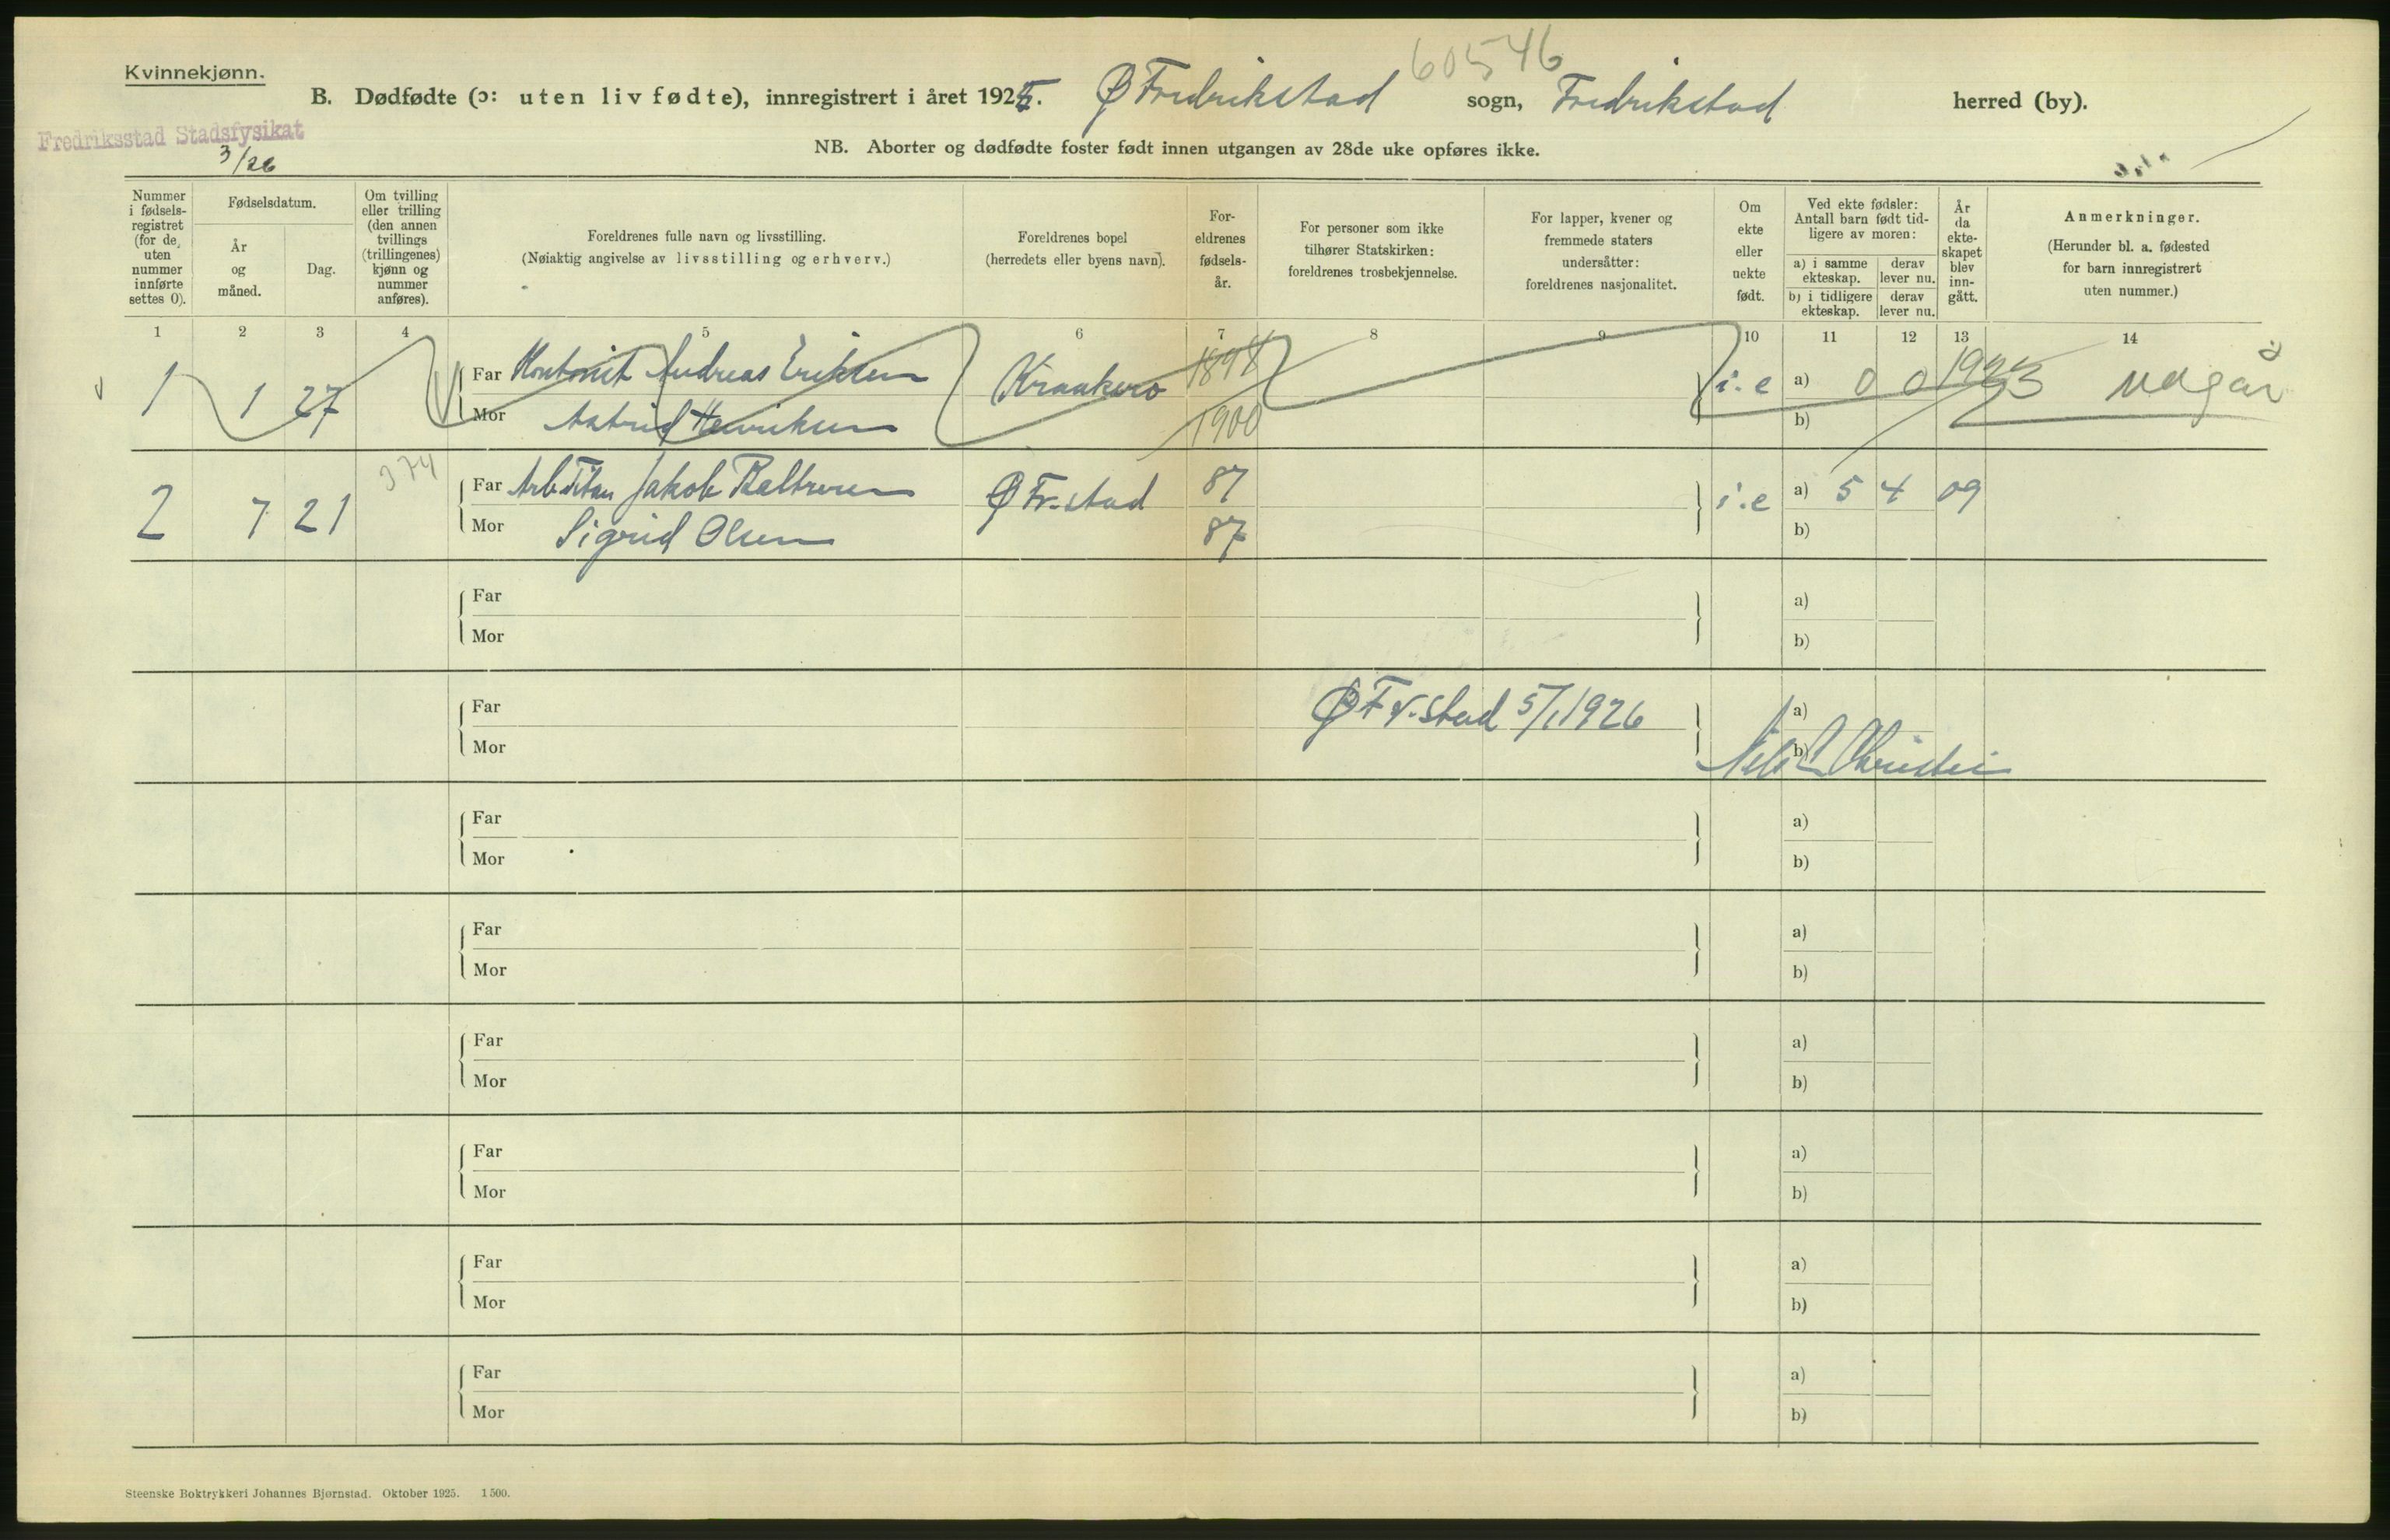 Kvinnekjønn.
60546
B. Dødfødte (ɔ: uten liv fødte), innregistrert i året 1925. Ø Fredrikstad sogn, Fredrikstad herred (by).
Fredriksstad Stadsfysikat
3/26
NB. Aborter og dødfødte foster født innen utgangen av 28de uke opføres ikke.
Nummer i fødsels-registret (for de uten nummer innførte settes 0).
Fødselsdatum.
År og måned.
Dag.
Om tvilling eller trilling (den annen tvillings (trillingenes) kjønn og nummer anføres).
Foreldrenes fulle navn og livsstilling.
(Nøiaktig angivelse av livsstilling og erhverv.)
Foreldrenes bopel
(herredets eller byens navn).
For-eldrenes fødsels-år.
For personer som ikke tilhører Statskirken: foreldrenes trosbekjennelse.
For lapper, kvener og fremmede staters undersåtter: foreldrenes nasjonalitet.
Om ekte eller uekte født.
Ved ekte fødsler: Antall barn født tid-ligere av moren:
a) i samme ekteskap.
derav lever nu.
b) i tidligere ekteskap.
derav lever nu.
År da ekte-skapet blev inn-gått.
Anmerkninger.
(Herunder bl. a. fødested for barn innregistrert uten nummer.)
1 2 3 4 5 6 7 8 9 10 11 12 13 14
1 1 27 Far Andreas Eriksen Kraakerø 1898 i.e a) 0 0 1923 Udgår
Mor Astrid Henriksen 1900 b)
374
2 7 21 Far Jakob Ø Fr.stad 87 i.e a) 5 4 09
Mor Sigrid Olsen 87 b)
Far a)
Mor b)
Far Ø Fr.stad 5/1 1926 a)
Mor b) Christie
Far a)
Mor b)
Far a)
Mor b)
Far a)
Mor b)
Far a)
Mor b)
Far a)
Mor b)
Far a)
Mor b)
Steenske Boktrykkeri Johannes Bjørnstad. Oktober 1925. 1500.